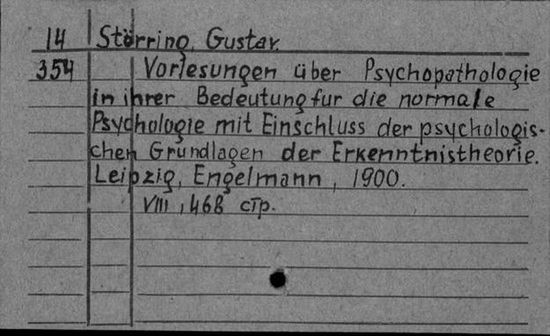 14 Störring, Gustav.
354 Vorlesungen über Psychopathologie
in ihrer Bedeutung fur die normale
Psychologie mit Einschluss der psychologis-
chen Grundlagen der Erkenntnistheorie.
Leipzig, Engelmann, 1900.
VIII, 468 стр.